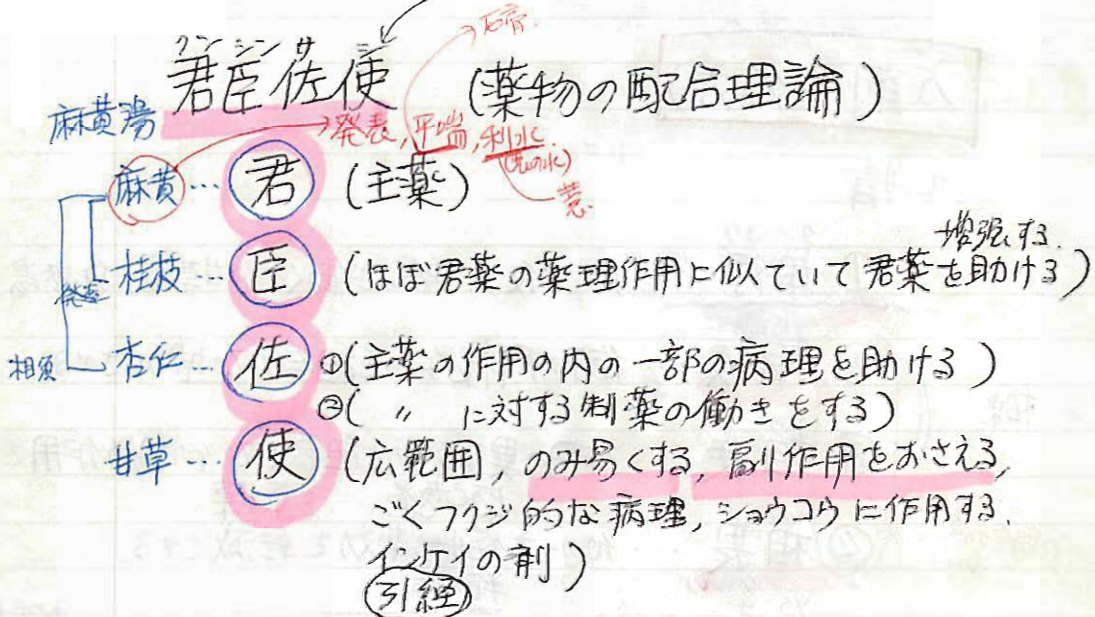 石膏.
クンシンサシ
君臣佐使 (薬物の配合理論)
麻黄湯
発表, 平喘, 利水.
麻黄… 君 (主薬)
増強する.
桂枝… 臣 (ほぼ君薬の薬理作用に似ていて君薬を助ける)
相須 杏仁… 佐 ①(主薬の作用の内の一部の病理を助ける)
②( 〃 に対する制薬の働きをする)
甘草… 使 (広範囲, のみ易くする, 副作用をおさえる,
ごくフクジ的な病理, ショウコウに作用する.
インケイの剤)
引経